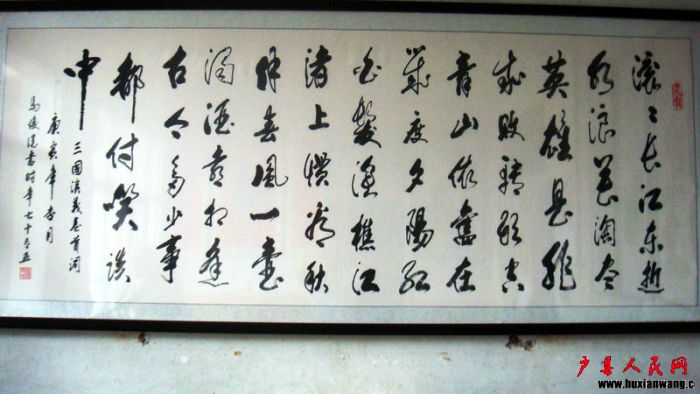 滚〻长江东逝
水浪花淘尽
英雄是非
成败转头空
青山依舊在
幾度夕陽红
白髮渔樵江
渚上惯看秋
月春風一壶
浊酒喜相逢
古今多少事
都付笑谈
中
三國演义卷首词
庚寅年杏月
马俊书时年七十有五
户县人民网
www.huxianwang.c